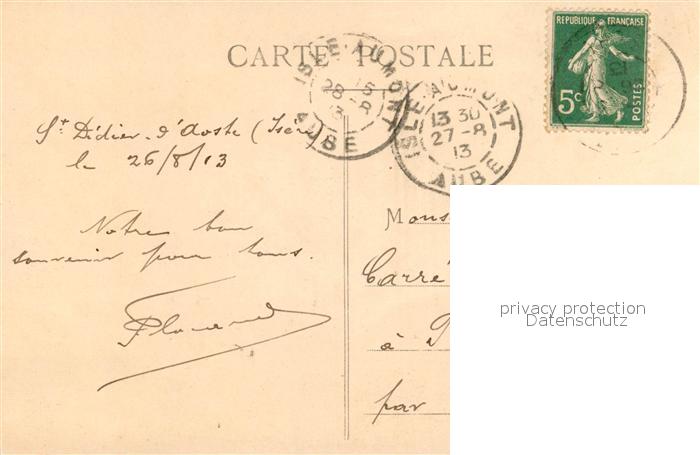 CARTE POSTALE
REPUBLIQUE FRANÇAISE
5c
POSTES
ISLE-AUMONT
28-8
13
AUBE
ISLE-AUMONT
13 30
27-8
13
AUBE
St Didier-d'Aoste (Isère)
le 26/8/13
Notre bon
souvenir pour tous.
Mons
Carré
à
par
privacy protection
Datenschutz